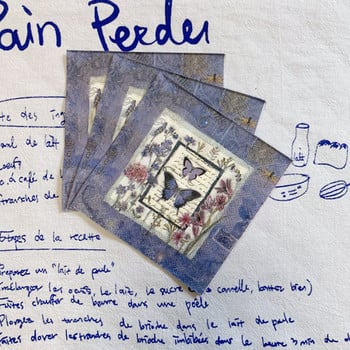 Pain Perdu
te des ing
lait
oeufs
à café de
tranches de
Étapes de la recette
Préparez un "lait de poule"
(mélangez les oeufs, le lait, le sucre, la cannelle, battez bien)
Faites chauffer du beurre dans une poêle
Plongez les tranches de brioche dans le lait de poule
Faites dorer les tranches de brioche imbibées dans le beurre 3 min de